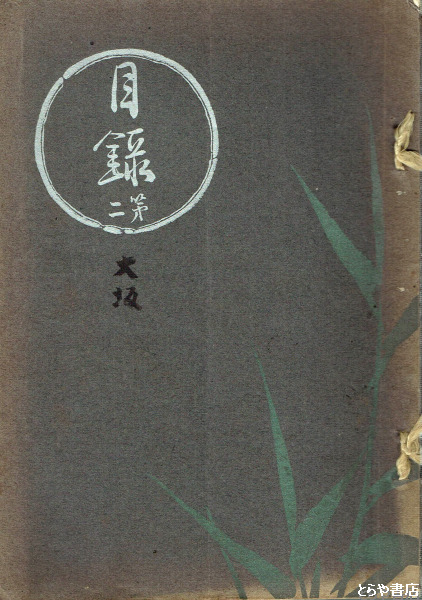 目録
第二
大坂
とらや書店